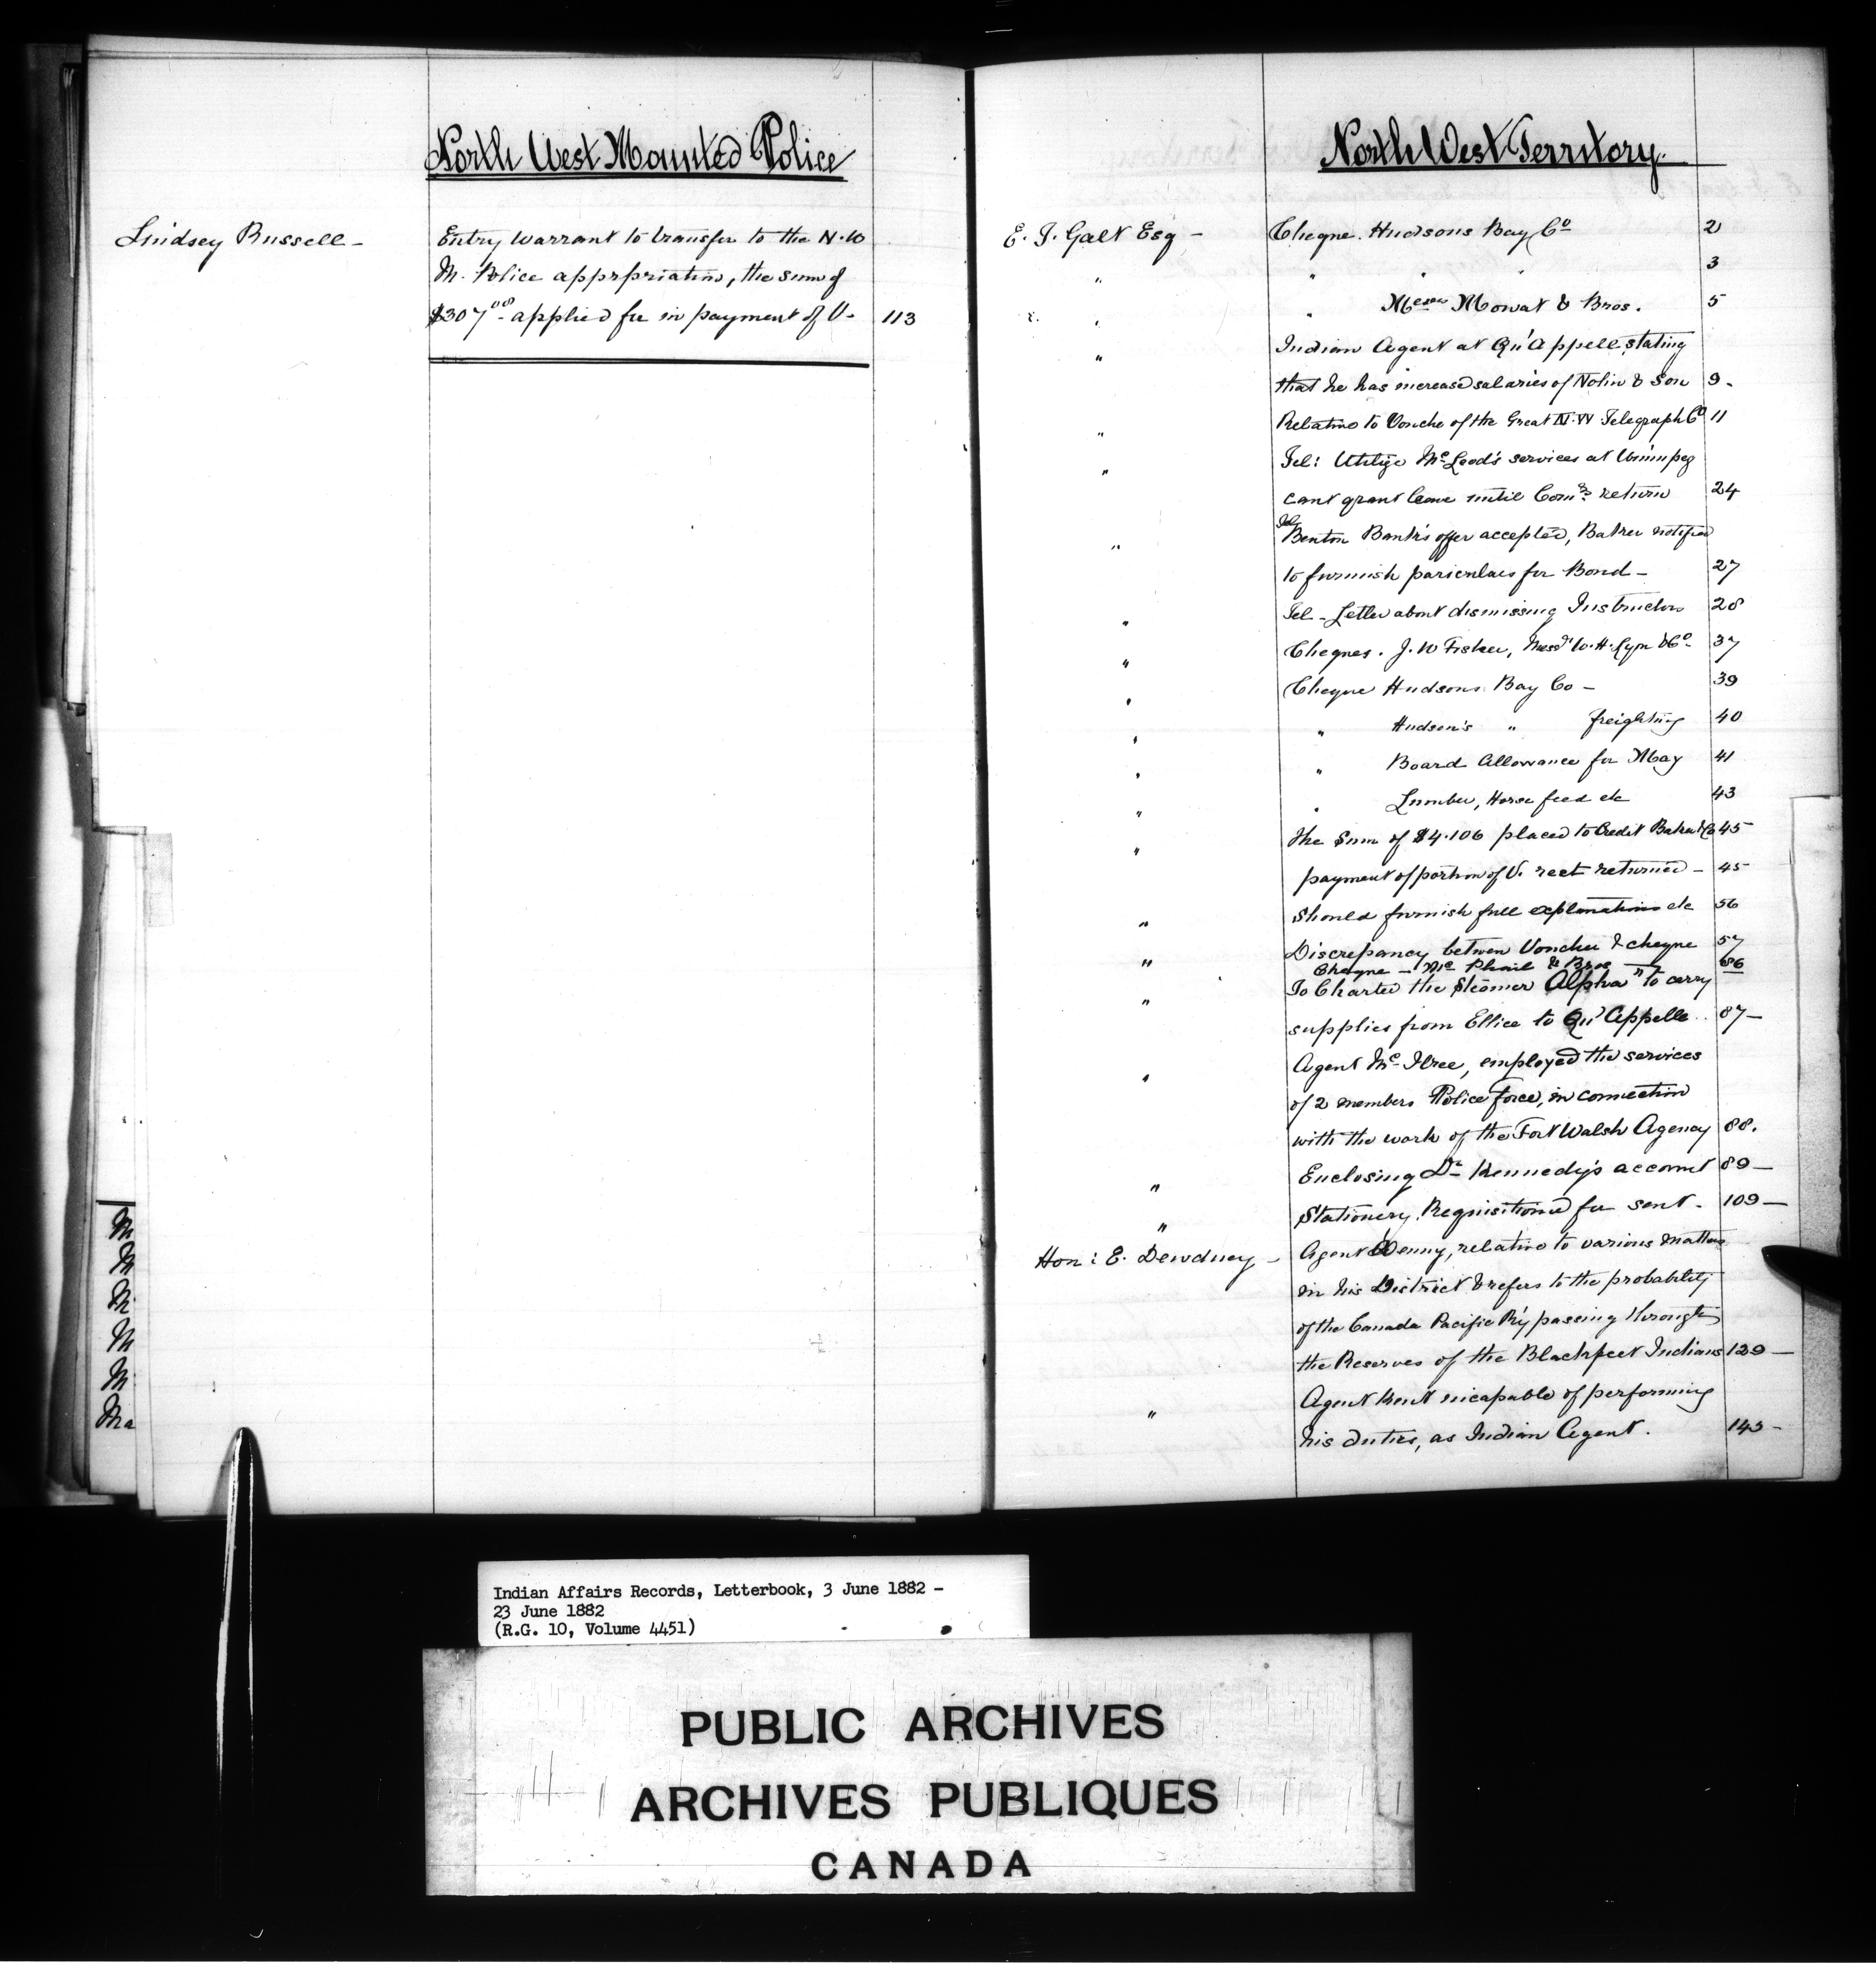 North West Mounted Police
Lindsey Russell - Entry Warrant to transfer to the N.W
M. Police appropriation, the sum of
$307.08 - applied for in payment of V- 113
North West Territory.
E. T. Galt Esq - Cheque. Hudsons Bay Co 2
" " " " 3
" " Messrs Mowat & Bros. 5
" Indian Agent at Qu'Appell, stating
that he has increased salaries of Nolin & Son 9-
" Relative to Vouche of the Great N.W Telegraph Co 11
" Tel: Utilize McLeod's services at Winnipeg
cant grant leave until Comrs return 24
" Tel Benton Bank's offer accepted, Baker notified
to furnish pariculars for Bond - 27
" Tel - Letter about dismissing Instructors 28
" Cheques. J. W Fisher, Messrs W. H. Lyon & Co - 37
" Cheque Hudsons Bay Co - 39
" " Hudson's " freighting 40
" " Board Allowance for May 41
" " Lumber, Horse feed etc 43
" the Sum of $4.106 placed to Credit Baker & Co 45
payment of portion of V. rect returned - 45
" Should furnish full explanations etc 56
" Discrepancy between Voucher & cheque 57
Cheque - McPhail & Bros 86
" To Charter the Steamer Alpha" to carry
supplies from Ellice to Qu'Appelle 87-
" Agent McIlree, employed the services
of 2 members Police force, in connection
with the work of the Fort Walsh Agency 88.
" Enclosing Dr Kennedy's account 89-
" Stationery. Requisitioned for sent. 109-
Hon: E. Dewdney - Agent Denny, relative to various matters
in his District & refers to the probability
of the Canada Pacific Ry passing through
the Reserves of the Blackfeet Indians 129-
" Agent Kent incapable of performing
his duties, as Indian Agent. 143-
M
M
M
M
M
Ma
Indian Affairs Records, Letterbook, 3 June 1882 -
23 June 1882
(R.G. 10, Volume 4451)
PUBLIC ARCHIVES
ARCHIVES PUBLIQUES
CANADA